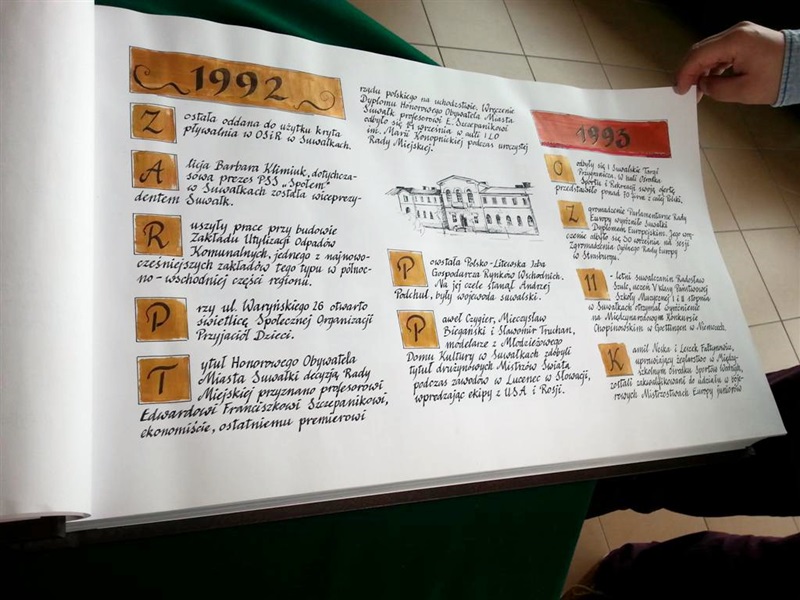 1992
Została oddana do użytku kryta
pływalnia w OSiR w Suwałkach.
Alicja Barbara Klimiuk, dotychcza-
sowa prezes PSS „Społem"
w Suwałkach została wiceprezy-
dentem Suwałk.
Ruszyły prace przy budowie
Zakładu Utylizacji Odpadów
Komunalnych, jednego z najnowo-
cześniejszych zakładów tego typu w północ-
no-wschodniej części regionu.
Przy ul. Waryńskiego 26 otwarto
świetlicę Społecznej Organizacji
Przyjaciół Dzieci.
Tytuł Honorowego Obywatela
Miasta Suwałki decyzją Rady
Miejskiej przyznano profesorowi
Edwardowi Franciszkowi Szczepanikowi,
ekonomiście, ostatniemu premierowi
rządu polskiego na uchodźstwie. Wręczenie
Dyplomu Honorowego Obywatela Miasta
Suwałk profesorowi E. Szczepanikowi
odbyło się września w auli I LO
im. Marii Konopnickiej podczas uroczystej
Rady Miejskiej.
Powstała Polsko-Litewska Izba
Gospodarcza Rynków Wschodnich.
Na jej czele stanął Andrzej
Podchul, były wojewoda suwalski.
Paweł Czygier, Mieczysław
Biegański i Sławomir Truchan,
modelarze z Młodzieżowego
Domu Kultury w Suwałkach zdobyli
tytuł drużynowych Mistrzów Świata
podczas zawodów w Lucenec w Słowacji,
wprzedając ekipy z USA i Rosji.
1993
Odbyły się I Suwalskie Targi
Przygranicza. W hali Ośrodka
Sportu i Rekreacji swoją ofertę
przedstawiło ponad 70 firm z całej Polski.
Zgromadzenie Parlamentarne Rady
Europy wyróżniło Suwałki
Dyplomem Europejskim. Jego wrę-
czenie odbyło się 30 września na sesji
Zgromadzenia Ogólnego Rady Europy
w Strasburgu.
11-letni suwalczanin Radosław
Szulc, uczeń V klasy Państwowej
Szkoły Muzycznej I i II stopnia
w Suwałkach otrzymał wyróżnienie
na Międzynarodowym Konkursie
Chopinowskim w Goettingen w Niemczech.
Kamil Neska i Leszek Fałtynowicz,
uprawiający żeglarstwo w Między-
szkolnym Ośrodku Sportów Wodnych,
zostali zakwalifikowani do udziału w bojo-
rowych Mistrzostwach Europy juniorów